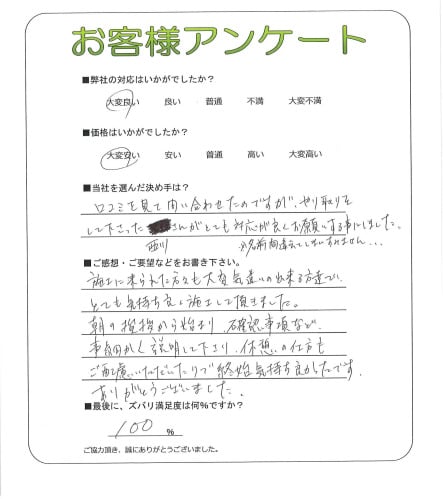 お客様アンケート
■弊社の対応はいかがでしたか?
大変良い 良い 普通 不満 大変不満
■価格はいかがでしたか?
大変安い 安い 普通 高い 大変高い
■当社を選んだ決め手は?
口コミを見て問い合わせたのですが、やり取りを
して下さった さんがとても対応が良くお願いする事にしました。
西川 ※名前間違えてしまいすみません...
■ご感想・ご要望などをお書き下さい。
施工に来られた方々も大変気遣いの出来る方達で、
とても気持ち良く施工して頂きました。
朝の挨拶から始まり、確認事項など、
事細かく説明して下さり、休憩の仕方も
ご配慮いただいたりで終始気持ち良かったです。
ありがとうございました。
■最後に、ズバリ満足度は何%ですか?
100 %
ご協力頂き、誠にありがとうございました。